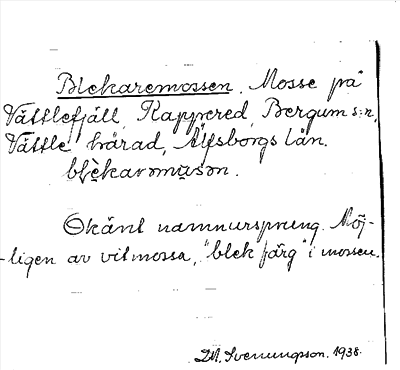 Blekaremossen. Mosse på
Vättlefjäll, Kappered, Bergum s:n,
Vättle härad, Älfsborgs län.
Okänt namnursprung. Möj-
-ligen av vitmossa, "blek färg" i mossen.
Svenungson. 1938.